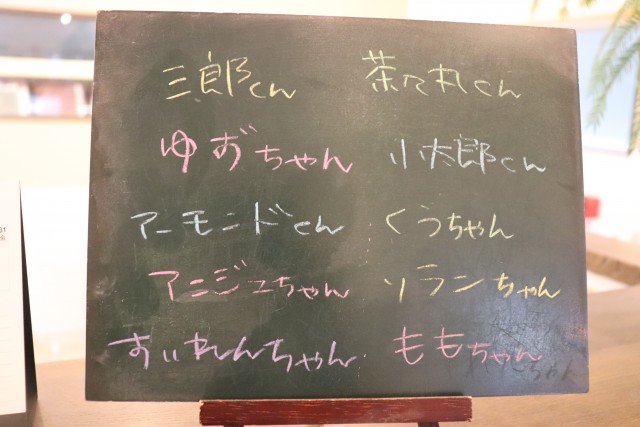 三郎くん 茶々丸くん
ゆずちゃん 小太郎くん
アーモンドくん くうちゃん
アニジュちゃん ソランちゃん
すいれんちゃん ももちゃん